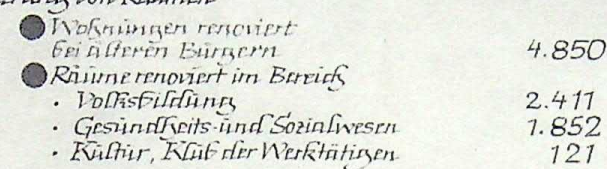 von Räumen
Wohnungen renoviert
bei älteren Bürgern 4.850
Räume renoviert im Bereich
· Volksbildung 2.411
· Gesundheits- und Sozialwesen 1.852
· Kultur, Klub der Werktätigen 121